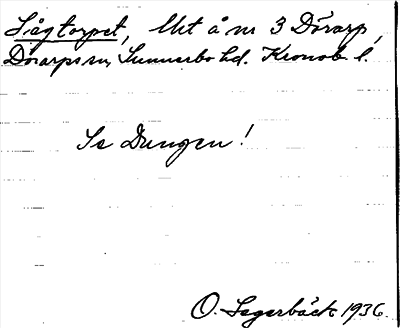 Sågtorpet, lht å nr 3 Dörarp,
Dörarps sn, Sunnerbo hd. Kronob. l.
Se Dungen!
O. Sagerbäck 1936.